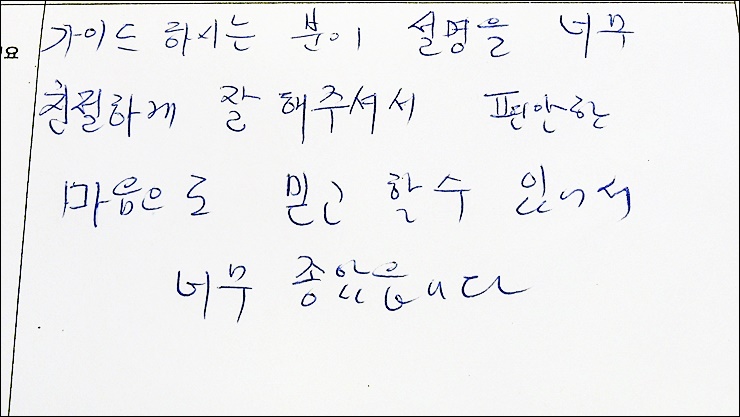 가이드 하시는 분이 설명을 너무
요
친절하게 잘 해주셔서 편안한
마음으로 믿고 할수 있어서
너무 좋았읍니다